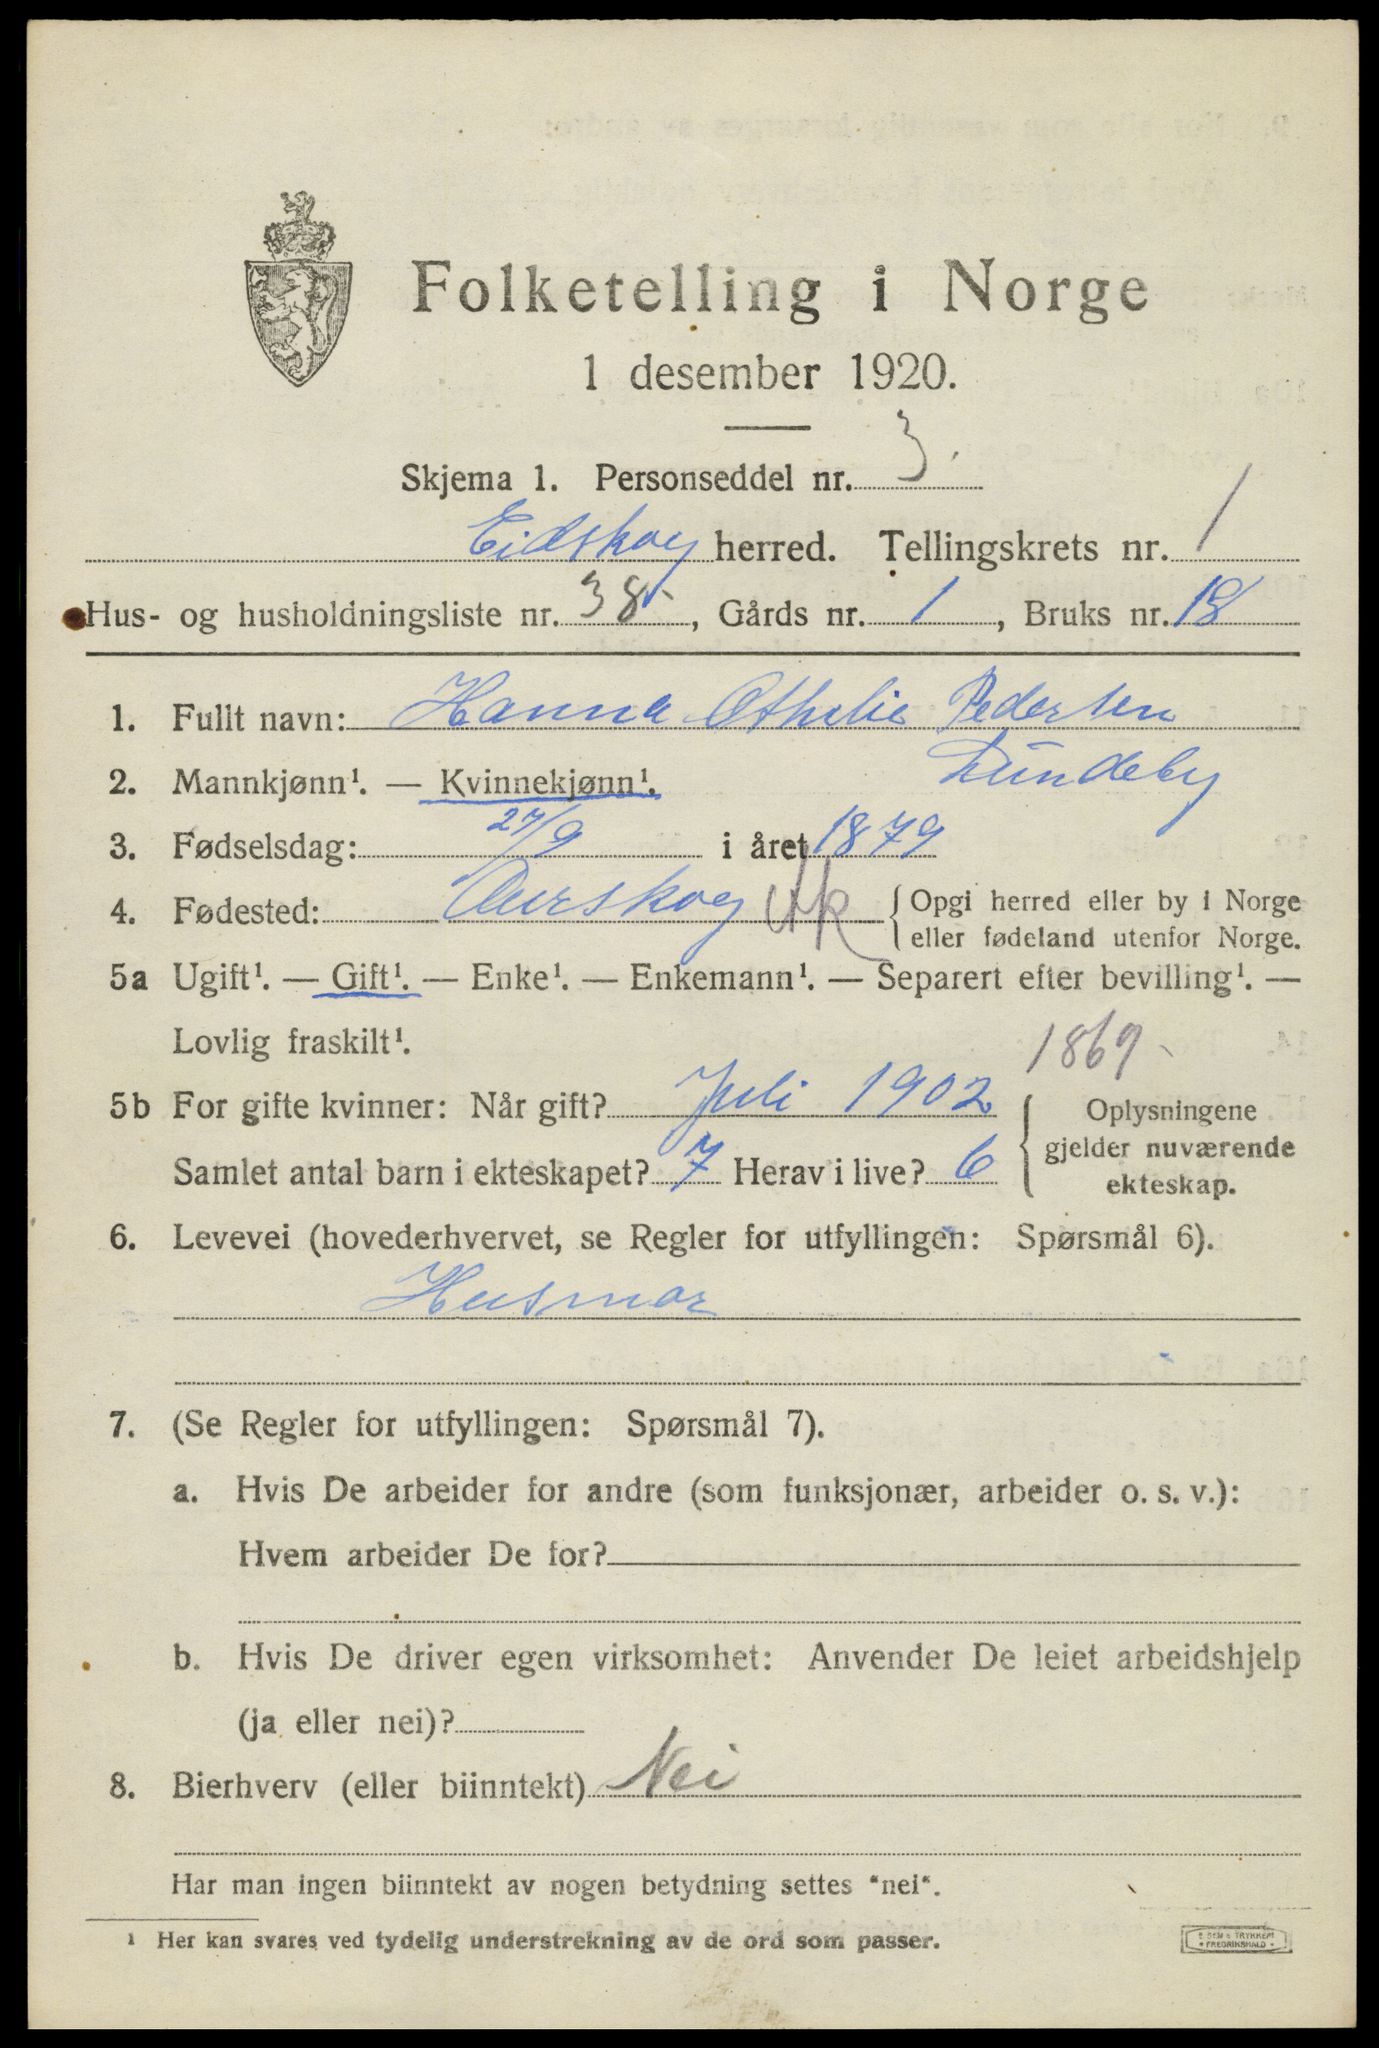 Folketelling i Norge
1 desember 1920.
Skjema 1. Personseddel nr. 3.
Eidskog herred. Tellingskrets nr. 1
Hus- og husholdningsliste nr. 38, Gårds nr. 1, Bruks nr. 18
1. Fullt navn: Hanna Othelie Pedersen
Lundeby
2. Mannkjønn¹. — Kvinnekjønn¹.
3. Fødselsdag: 27/9 i året 1879
4. Fødested: Aurskog { Opgi herred eller by i Norge
eller fødeland utenfor Norge.
5a Ugift¹. — Gift¹. — Enke¹. — Enkemann¹. — Separert efter bevilling¹. —
Lovlig fraskilt¹.
1869
5b For gifte kvinner: Når gift? Juli 1902 { Oplysningene
gjelder nuværende
Samlet antal barn i ekteskapet? 7 Herav i live? 6
ekteskap.
6. Levevei (hovederhvervet, se Regler for utfyllingen: Spørsmål 6).
Husmor
7. (Se Regler for utfyllingen: Spørsmål 7).
a. Hvis De arbeider for andre (som funksjonær, arbeider o. s. v.):
Hvem arbeider De for?
b. Hvis De driver egen virksomhet: Anvender De leiet arbeidshjelp
(ja eller nei)?
8. Bierhverv (eller biinntekt) Nei
Har man ingen biinntekt av nogen betydning settes "nei".
¹ Her kan svares ved tydelig understrekning av de ord som passer.